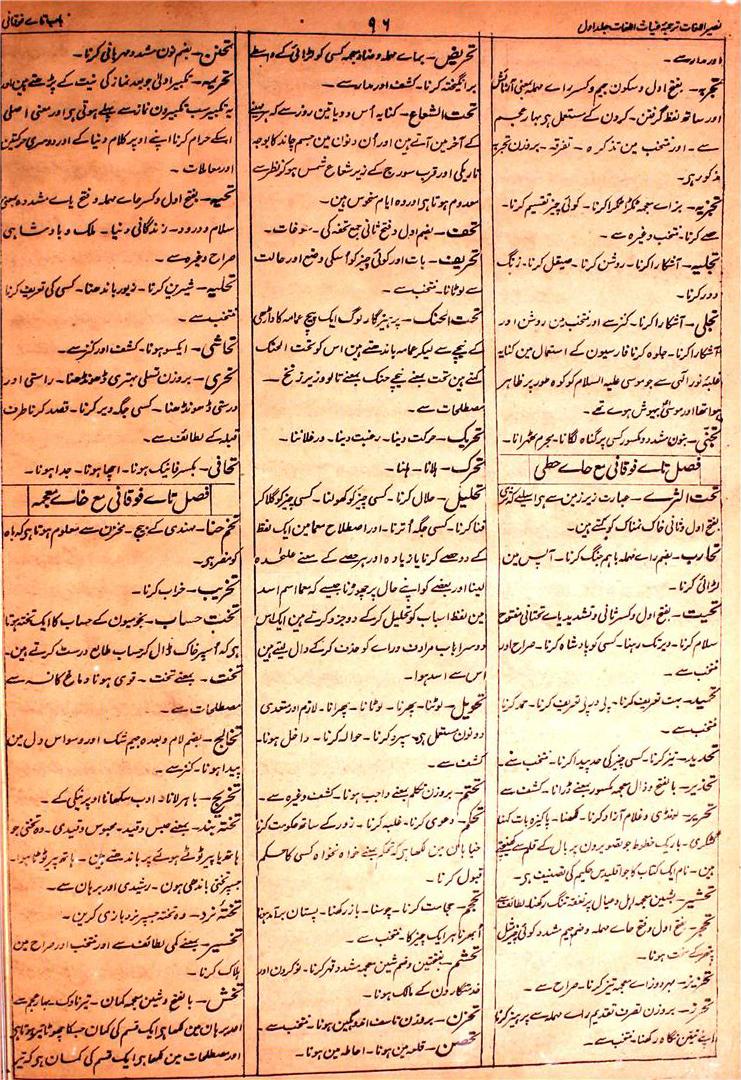 نصیر اللغات ترجمۂ غیاث اللغات جلد اول
۹۶
باب تاے فوقانی
اور مدار سے۔
تجربہ۔ بفتح اول و سکون جیم و کسر راے مہملہ بمعنی آزمائش
اور ساتھ لفظ گرفتن۔ کردن کے مستعمل ہی بہار عجم
سے۔ اور منتخب مین تذکرہ۔ تفرقہ۔ بروزن تجربہ
مذکور ہی۔
تجزیہ۔ بزاے معجمہ ٹکڑا ٹکڑا کرنا۔ کوئی چیز تقسیم کرنا۔
حصے کرنا۔ منتخب وغیرہ سے۔
تجلیہ۔ آشکارا کرنا۔ روشن کرنا۔ صیقل کرنا۔ زنگ
دور کرنا۔
تجلی۔ آشکارا کرنا۔ کنز سے اور منتخب مین روشن اور
آشکارا کرنا۔ جلوہ کرنا فارسیون کے استعمال مین کنایہ
غلبۂ نور الٰہی سے جو موسیٰ علیہ السلام کو کوہ طور پر ظاہر
ہوا تھا اور موسیٰ بیہوش ہوے تھے۔
تجنّی۔ بنون مشدد و مکسور کسی پر گناہ لگانا۔ مجرم ٹھرانا۔
فصل تاے فوقانی مع حاے حطی
تحت الثرے۔ عبارت زیر زمین سے ہی اسلیے کہ ثری
بفتح اول و ثانی خاک نمناک کو کہتے ہین۔
تحارب۔ بضم راے مہملہ باہم جنگ کرنا۔ آپس مین
لڑائی کرنا۔
تحیت۔ بفتح اول و کسر ثانی و تشدید یاے تحتانی مفتوح
سلام کرنا۔ دیر تک رہنا۔ کسی کو بادشاہ کرنا۔ صراح اور
منتخب سے۔
تحمید۔ بہت تعریف کرنا۔ پے در پے تعریف کرنا۔ حمد کرنا
منتخب سے۔
تحدید۔ تیز کرنا۔ کسی چیز کی حد پیدا کرنا۔ منتخب سے۔
تحذیر۔ بالفتح و ذال معجمہ مکسور بمعنے ڈرانا۔ کشف سے
تحریر۔ لونڈی و غلام آزاد کرنا۔ لکھنا۔ پاکیزہ بات کرنا
باریک خطوط جو تصویرون پر بال کے قلم سے کھینچتے
ہین۔ نام ایک کتاب کا جو اقلیدس حکیم کی تصنیف ہی۔
تحشیر۔ بشین معجمہ اہل و عیال پر نفقہ تنگ رکھنا۔ لطائف سے
تحجر۔ بفتح اول و فتح حاے مہملہ و ضم جیم مشدد کوئی چیز مثل
پتھر کے سخت ہونا۔
تحزیز۔ بہر دو زاے معجمہ تیز کرنا۔ صراح سے۔
تحرز۔ بروزن تصرف تقدیم راے مہملہ سے پرہیز کرنا
اپنے تئین نگاہ رکھنا۔ منتخب سے۔
تحریض۔ براے مہملہ و ضاد معجمہ کسی کو لڑائی کے واسطے
برانگیختہ کرنا۔ کشف اور مدار سے۔
تحت الشعاع۔ کنایہ اُس دو یا تین روز سے کہ ہر مہینے
کے آخر مین آتے ہین اور اُن دنون مین جسم چاند کا بوجہ
تاریکی اور قرب سورج کے زیر شعاع شمس ہوکر نظر سے
معدوم ہوتا ہی اور وہ ایام منحوس ہین۔
تحف۔ بضم اول و فتح ثانی جمع تحفہ کی۔ سوغات۔
تحریف۔ بات اور کوئی چیز کو اُسکی وضع اور حالت
سے لوٹانا۔ منتخب سے۔
تحت الحنک۔ پرہیزگار لوگ ایک پیچ عمامہ کا داڑھی
کے نیچے سے لیکر عمامہ باندھتے ہین اس کو تحت الحنک
کہتے ہین تحت بمعنے نیچے حنک بمعنے تالو و زیر زنخ۔
مصطلحات سے۔
تحریک۔ حرکت دینا۔ رغبت دینا۔ ورغلاننا۔
تحرک۔ ہلانا۔ ہلنا۔
تحلیل۔ حلال کرنا۔ کسی چیز کو کھولنا۔ کسی چیز کو گلا کر
فنا کرنا۔ کسی جگہ اُترنا۔ اور اصطلاح معما مین ایک لفظ
کے دو حصے کرنا یا زیادہ اور ہر حصے کے معنے علٰحدہ
لینا اور بعضے کو اپنے حال پر چھوڑنا جیسے کہ معما اسم اسد
مین لفظ اسباب کو تحلیل کرکے دو جزو کرتے ہین ایک اس
دوسرا باب مرادف در اے کو حذف کرکے دال لیتے ہین
اس سے اسد ہوا۔
تحویل۔ لوٹنا۔ پھرنا۔ لوٹانا۔ پھرانا۔ لازم اور متعدی
دونون مستعمل ہی۔ سپرد کرنا۔ حوالہ کرنا۔ داخل ہونا۔
کشف سے۔
تحتم۔ بروزن تکلم بمعنے واجب ہونا۔ کشف وغیرہ سے۔
تحکم۔ دعوی کرنا۔ غلبہ کرنا۔ زور کے ساتھ حکومت کرنا
خیابان مین لکھا ہی کہ تحکم بمعنے خواہ نخواہ کسی کا حکم
قبول کرنا۔
تحجم۔ حجامت کرنا۔ چوسنا۔ باز رکھنا۔ پستان برآمد ہونا
اُبھرنا ہر ایک چیز کا۔ منتخب سے۔
تحشم۔ بفتحتین و ضم شین معجمہ مشدد قہر کرنا۔ نوکرون اور
خدمتگارون کے مالک ہونا۔
تحزن۔ بروزن تاسف اندوہگین ہونا۔ منتخب سے۔
تحصن۔ قلعہ مین ہونا۔ احاطہ مین ہونا۔
تحنن۔ بضم نون مشدد مہربانی کرنا۔
تحریمہ۔ تکبیر اولیٰ جو بعد نماز کی نیت کے پڑھتے ہین اور
یہ تکبیر سب تکبیرون نماز سے پہلے ہوتی ہی اور معنی اصلی
اسکے حرام کرنا اپنے اوپر کلام دنیا کے اور دوسری حرکتین
اور معاملات۔
تحیہ۔ بفتح اول و کسر حاے مہملہ و فتح یاے مشددہ بمعنی
سلام و درود۔ زندگانی دنیا۔ ملک و بادشاہی
صراح وغیرہ سے۔
تحلیہ۔ شیرین کرنا۔ زیور باندھنا۔ کسی کی تعریف کرنا
منتخب سے۔
تحاشی۔ ایکسو ہونا۔ کشف اور کنز سے۔
تحری۔ بروزن تسلی بہتری ڈھونڈھنا۔ راستی اور
درستی ڈھونڈھنا۔ کسی جگہ دیر کرنا۔ قصد کرنا طرف
قبلہ کے لطائف سے۔
تحافی۔ بکسر فا نیک ہونا۔ اچھا ہونا۔ جدا ہونا۔
فصل تاے فوقانی مع خاے معجمہ
تخم حنا۔ مہندی کے بیج۔ مخزن سے معلوم ہوتا ہی کہ باہ
کو مضر ہی۔
تخریب۔ خراب کرنا۔
تخت حساب۔ نجومیون کے حساب کا ایک تختہ ہوتا
ہی کہ اُسپر خاک ڈال کر حساب طالع درست کرتے ہین۔
تخت۔ بمعنے تخت۔ قوی ہونا دماغ کا نشہ سے
مصطلحات سے۔
تخالج۔ بضم لام و بعدہ جیم شک اور وسواس دل مین
پیدا ہونا۔ کنز سے۔
تخریج۔ باہر لانا۔ ادب سکھانا اوپر نیکی کے۔
تختہ بند۔ بمعنے حبس و قید۔ محبوس و قیدی۔ وہ تختی جو
ہاتھ یا پیر ٹوٹے ہوئے پر باندھتے ہین۔ ہاتھ پیر ٹوٹا ہوا۔
جسپر تختی باندھی ہون۔ رشیدی اور برہان سے۔
تختۂ نرد۔ وہ تختہ جسپر نرد بازی کرین۔
تخسیر۔ بمعنے کمی لطائف سے اور منتخب اور صراح مین
ہلاک کرنا۔
تخش۔ بالفتح و شین معجمہ کمان۔ تیر ناوک بہار عجم سے
اور برہان مین لکھا ہی ایک قسم کی کمان جسکا چھوٹا تیر ہوتا ہی
اور مصطلحات مین لکھا ہی ایک قسم کی کمان ہی کہ تیر